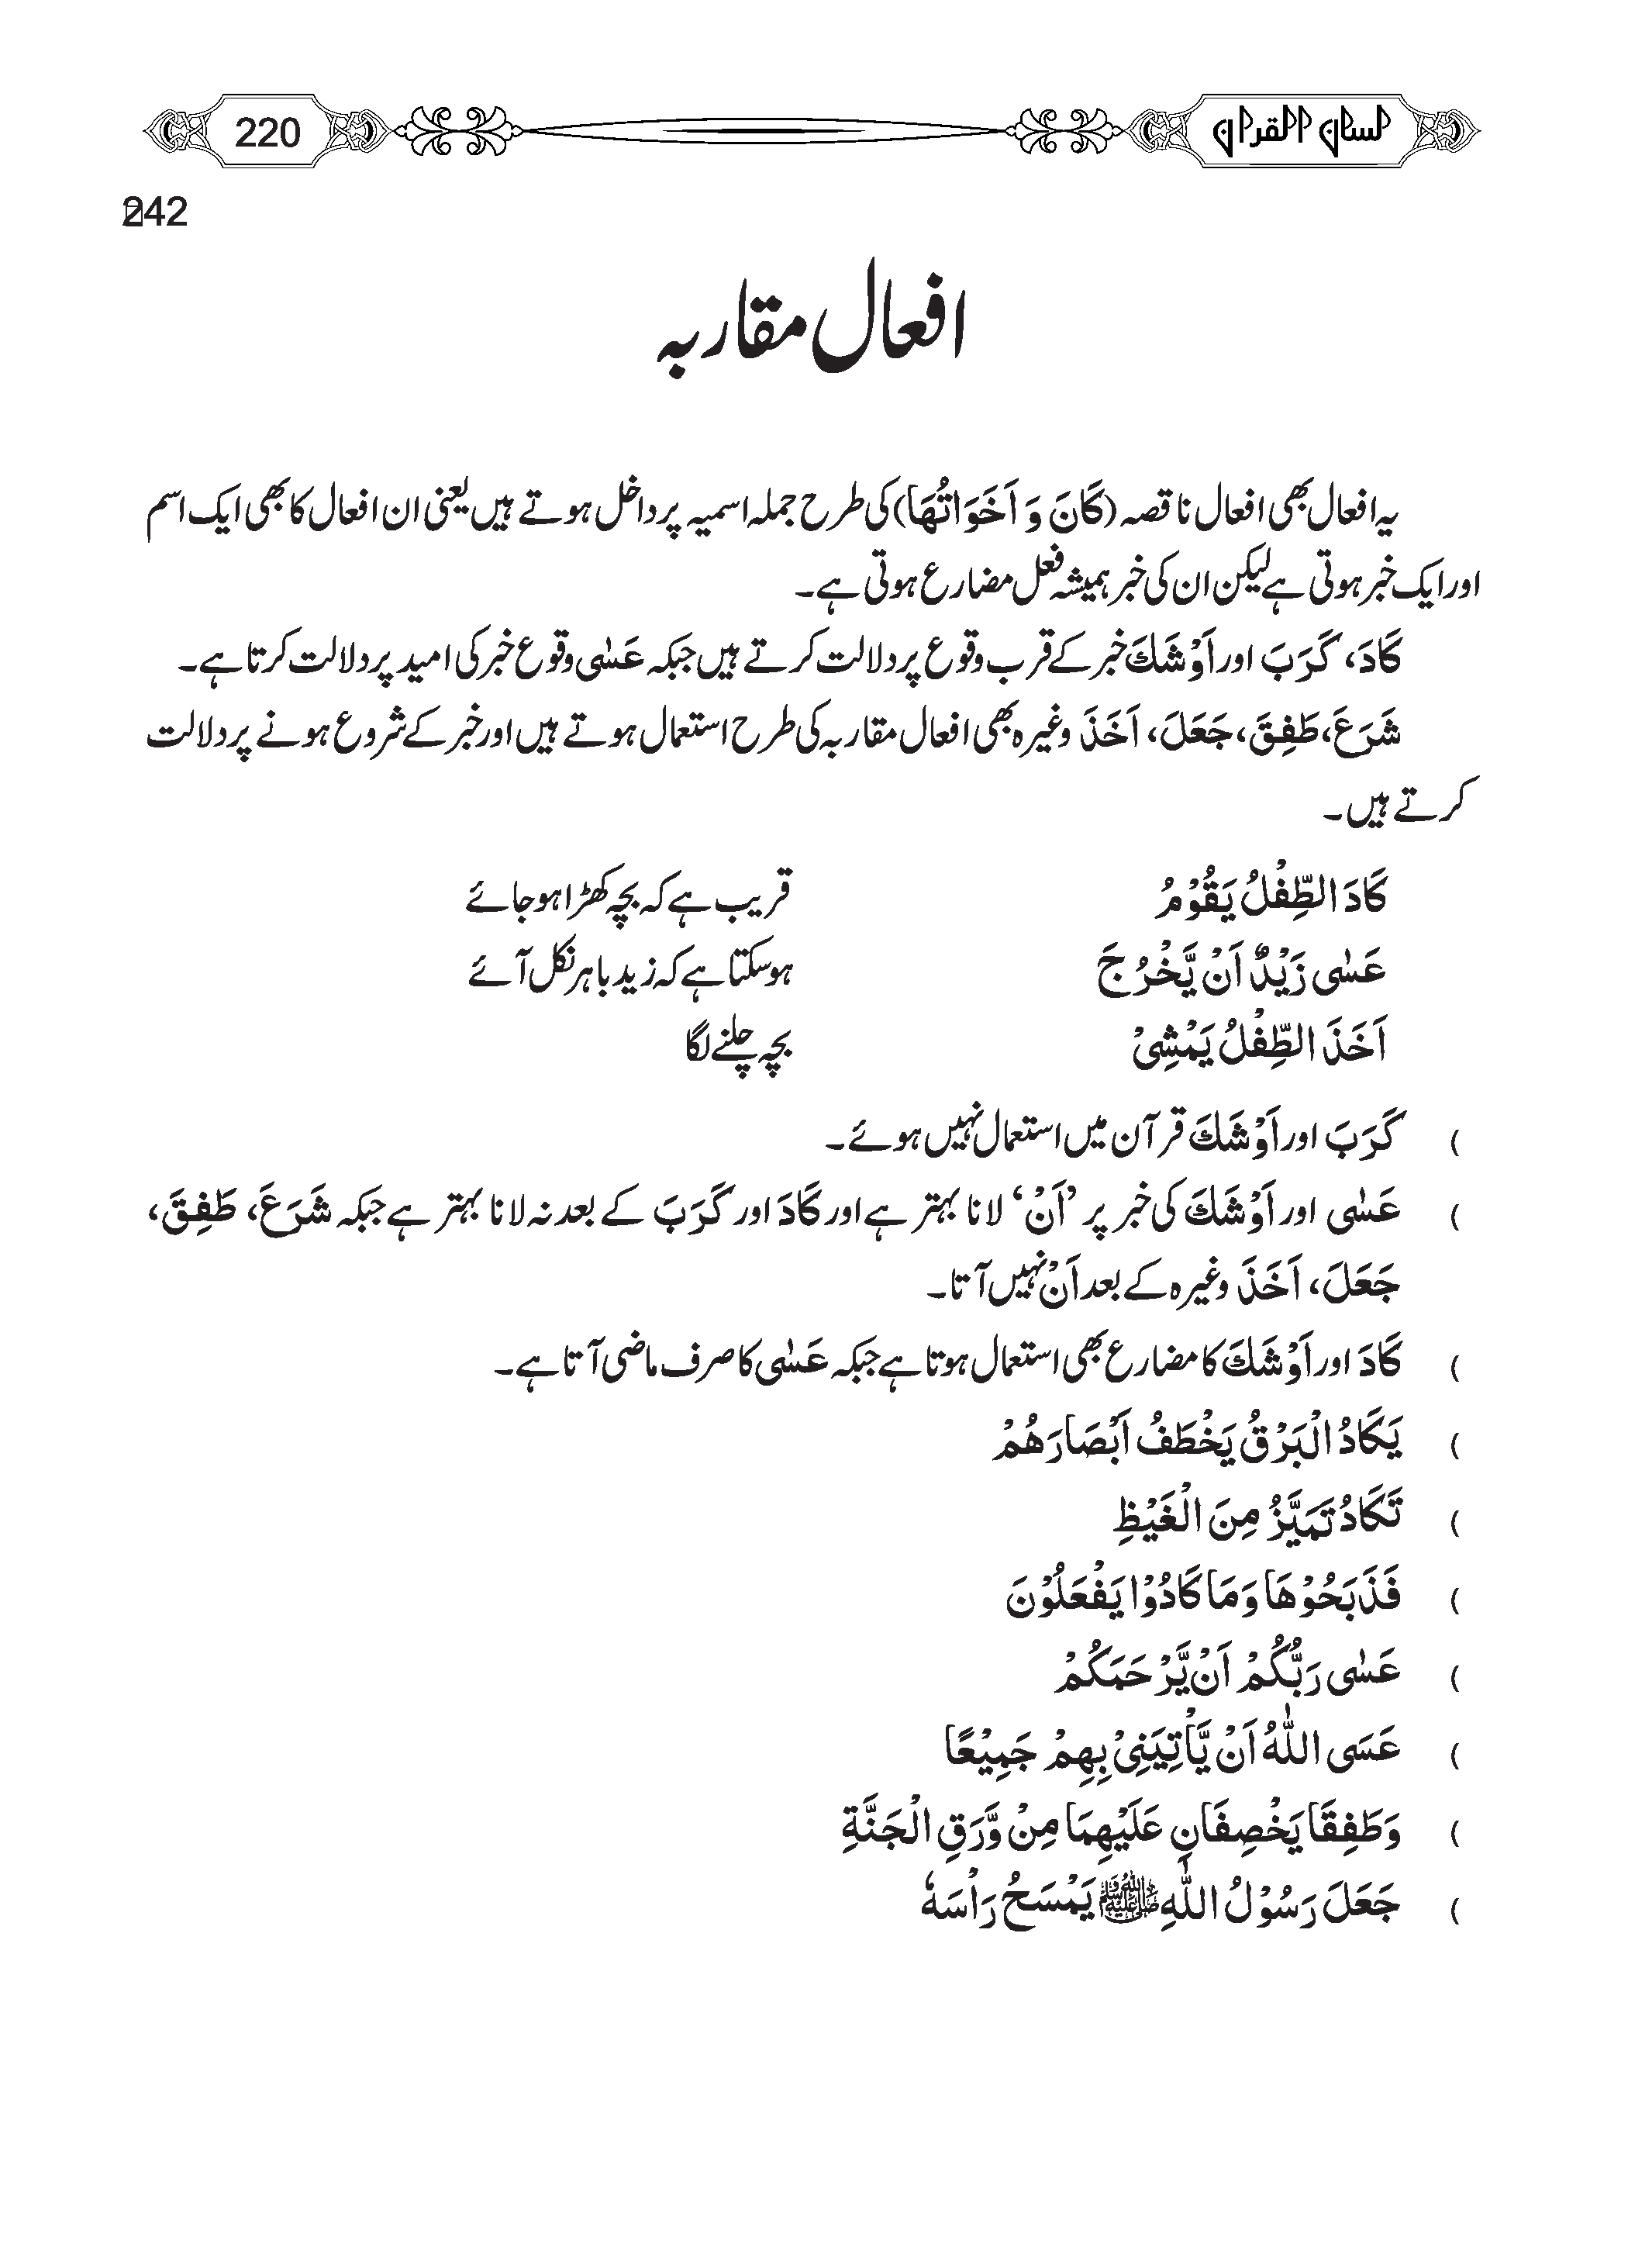 لسان القرآن
220
242
افعال مقاربہ
یہ افعال بھی افعال ناقصہ (كَانَ وَ اَخَوَاتُهَا) کی طرح جملہ اسمیہ پر داخل ہوتے ہیں یعنی ان افعال کا بھی ایک اسم
اور ایک خبر ہوتی ہے لیکن ان کی خبر ہمیشہ فعل مضارع ہوتی ہے۔
كَادَ، كَرَبَ اور اَوْشَكَ خبر کے قرب وقوع پر دلالت کرتے ہیں جبکہ عَسٰی وقوع خبر کی امید پر دلالت کرتا ہے۔
شَرَعَ، طَفِقَ، جَعَلَ، اَخَذَ وغیرہ بھی افعال مقاربہ کی طرح استعمال ہوتے ہیں اور خبر کے شروع ہونے پر دلالت
کرتے ہیں۔
كَادَ الطِّفْلُ يَقُوْمُ قریب ہے کہ بچہ کھڑا ہو جائے
عَسٰى زَيْدٌ اَنْ يَّخْرُجَ ہوسکتا ہے کہ زید باہر نکل آئے
اَخَذَ الطِّفْلُ يَمْشِىْ بچہ چلنے لگا
) كَرَبَ اور اَوْشَكَ قرآن میں استعمال نہیں ہوئے۔
) عَسٰى اور اَوْشَكَ کی خبر پر ’اَنْ‘ لانا بہتر ہے اور كَادَ اور كَرَبَ کے بعد نہ لانا بہتر ہے جبکہ شَرَعَ، طَفِقَ،
جَعَلَ، اَخَذَ وغیرہ کے بعد اَنْ نہیں آتا۔
) كَادَ اور اَوْشَكَ کا مضارع بھی استعمال ہوتا ہے جبکہ عَسٰى کا صرف ماضی آتا ہے۔
) يَكَادُ الْبَرْقُ يَخْطَفُ اَبْصَارَهُمْ
) تَكَادُ تَمَيَّزُ مِنَ الْغَيْظِ
) فَذَبَحُوْهَا وَمَا كَادُوْا يَفْعَلُوْنَ
) عَسٰى رَبُّكُمْ اَنْ يَّرْحَمَكُمْ
) عَسَى اللّٰهُ اَنْ يَّاْتِيَنِىْ بِهِمْ جَمِيْعًا
) وَطَفِقَا يَخْصِفَانِ عَلَيْهِمَا مِنْ وَّرَقِ الْجَنَّةِ
) جَعَلَ رَسُوْلُ اللّٰهِ ﷺ يَمْسَحُ رَاْسَهٗ